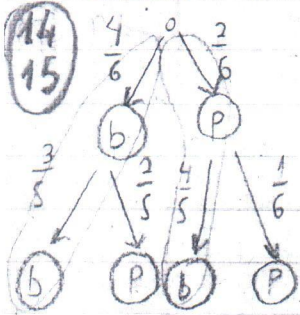 14
15
4/6 0 2/6
b P
3/5 2/5 4/5 1/6
b P b P